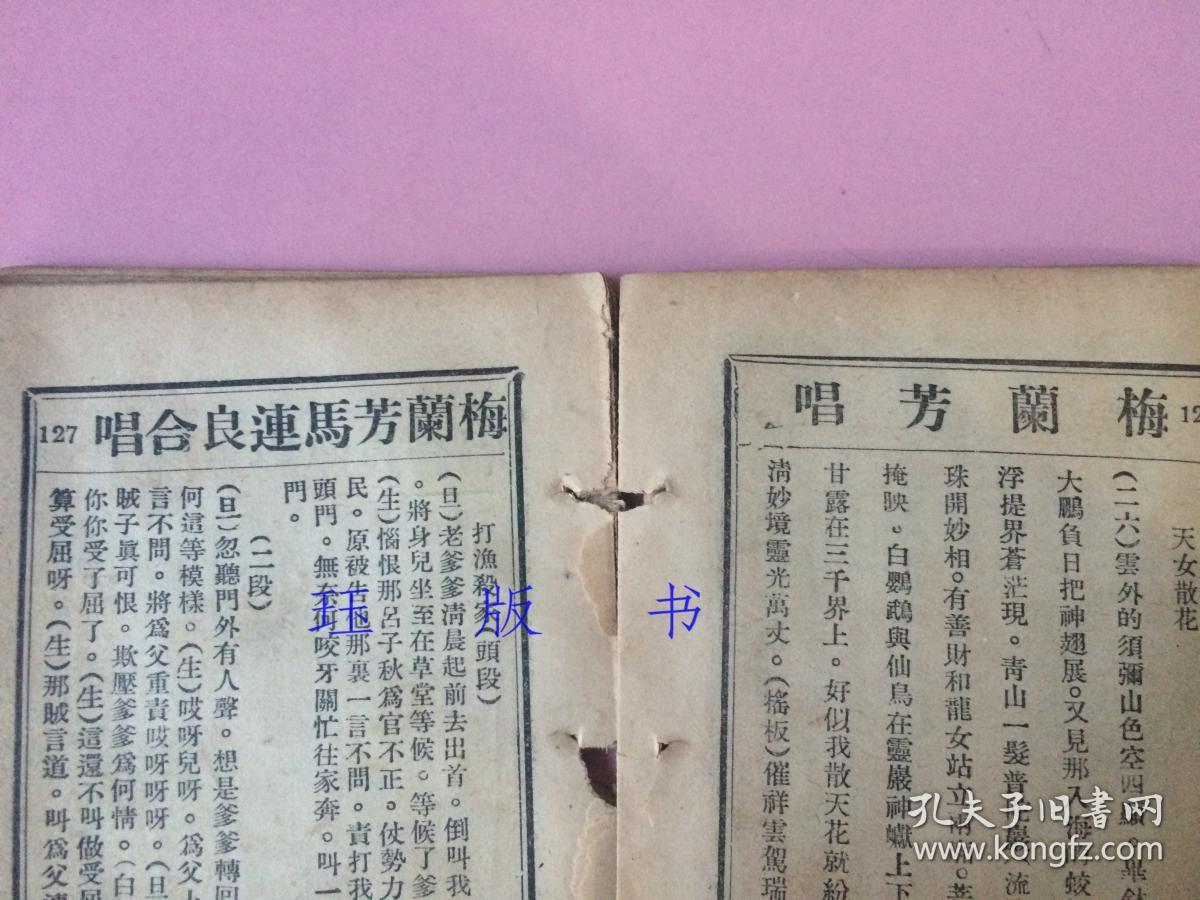 梅蘭芳唱
12
天女散花
(二六)雲外的須彌山色空四
大鵬負日把神翅展。又見那入海
浮提界蒼茫現。青山一髮普
珠開妙相。有善財和龍女站立兩
掩映。白鸚鵡與仙鳥在靈巖神巘上下
甘露在三千界上。好似我散天花就紛
清妙境靈光萬丈。(搖板)催祥雲駕瑞
梅蘭芳馬連良合唱
127
打漁殺家(頭段)
(旦)老爹爹淸晨起前去出首。倒叫我
。將身兒坐至在草堂等候。等候了爹
(生)惱恨那呂子秋爲官不正。仗勢力
民。原被告他那裏一言不問。責打我
頭門。無奈何咬牙關忙往家奔。叫一
門。
(二段)
(旦)忽聽門外有人聲。想是爹爹轉回
何這等模樣。(生)哎呀兒呀。爲父上
言不問。將爲父重責哎呀呀呀。(旦
賊子眞可恨。欺壓爹爹爲何情。(白
你你受了屈了。(生)這還不叫做受屈
算受屈呀。(生)那賊言道。叫爲父連
珏版书
孔夫子旧書网
www.kongfz.com